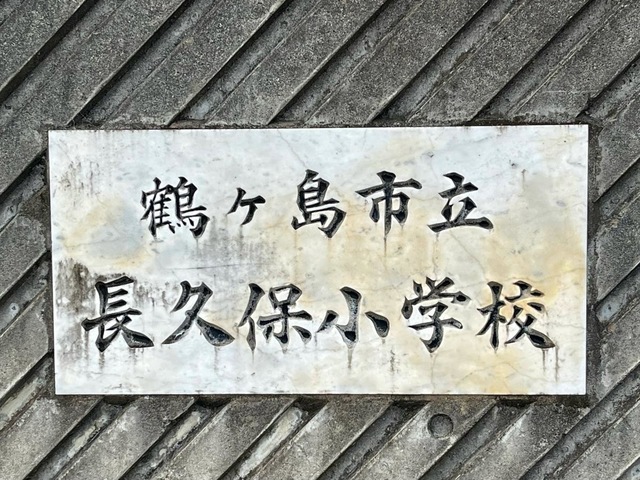 鶴ヶ島市立
長久保小学校